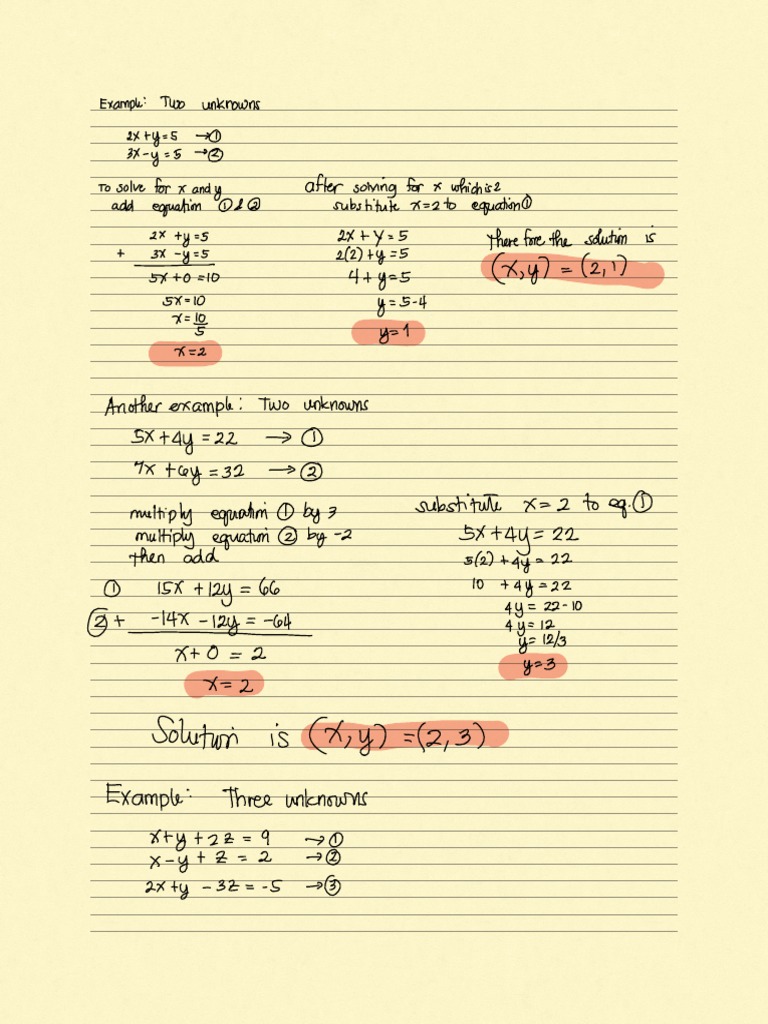 Example: Two unknowns
2x+y=5 →①
3x-y=5 →②
To solve for x and y
add equation ① & ②
2x +y=5
+ 3x -y=5
5x+0=10
5x=10
x=10
5
x=2
after solving for x which is 2
substitute x=2 to equation①
2x+y=5
2(2)+y=5
4+y=5
y=5-4
y=1
There fore the solution is
(x,y) = (2,1)
Another example: Two unknowns
5x+4y=22 → ①
7x+6y=32 → ②
multiply equation ① by 3
multiply equation ② by -2
then add
① 15x +12y = 66
②+ -14x -12y = -64
x+0 = 2
x= 2
substitute x=2 to eq.①
5x+4y=22
5(2)+4y=22
10 +4y=22
4y= 22-10
4y= 12
y= 12/3
y=3
Solution is (x,y) =(2,3)
Example: Three unknowns
x+y+2z = 9 →①
x-y+z = 2 →②
2x+y -3z=-5 →③